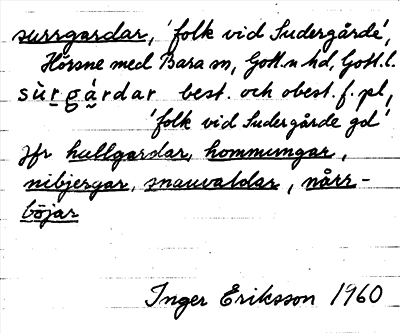 surrgardar, 'folk vid Sudergårde',
Hörsne med Bara sn, Gotl. n hd, Gotl. l.
sùrgárdar best. och obest. f. pl,
'folk vid Sudergårde gd'
Jfr hullgardar, hommungar,
nibjergar, snauvaldar, nårr-
böjar
Inger Eriksson 1960